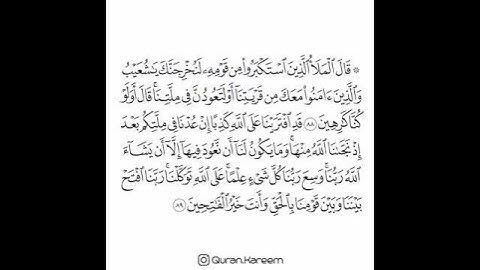 ۞ قَالَ ٱلْمَلَأُ ٱلَّذِينَ ٱسْتَكْبَرُوا۟ مِن قَوْمِهِۦ لَنُخْرِجَنَّكَ يَـٰشُعَيْبُ
وَٱلَّذِينَ ءَامَنُوا۟ مَعَكَ مِن قَرْيَتِنَآ أَوْ لَتَعُودُنَّ فِى مِلَّتِنَا ۚ قَالَ أَوَلَوْ
كُنَّا كَـٰرِهِينَ ٨٨ قَدِ ٱفْتَرَيْنَا عَلَى ٱللَّهِ كَذِبًا إِنْ عُدْنَا فِى مِلَّتِكُم بَعْدَ
إِذْ نَجَّىٰنَا ٱللَّهُ مِنْهَا ۚ وَمَا يَكُونُ لَنَآ أَن نَّعُودَ فِيهَآ إِلَّآ أَن يَشَآءَ
ٱللَّهُ رَبُّنَا ۚ وَسِعَ رَبُّنَا كُلَّ شَىْءٍ عِلْمًا ۚ عَلَى ٱللَّهِ تَوَكَّلْنَا ۚ رَبَّنَا ٱفْتَحْ
بَيْنَنَا وَبَيْنَ قَوْمِنَا بِٱلْحَقِّ وَأَنتَ خَيْرُ ٱلْفَـٰتِحِينَ ٨٩
Quran.Kareem